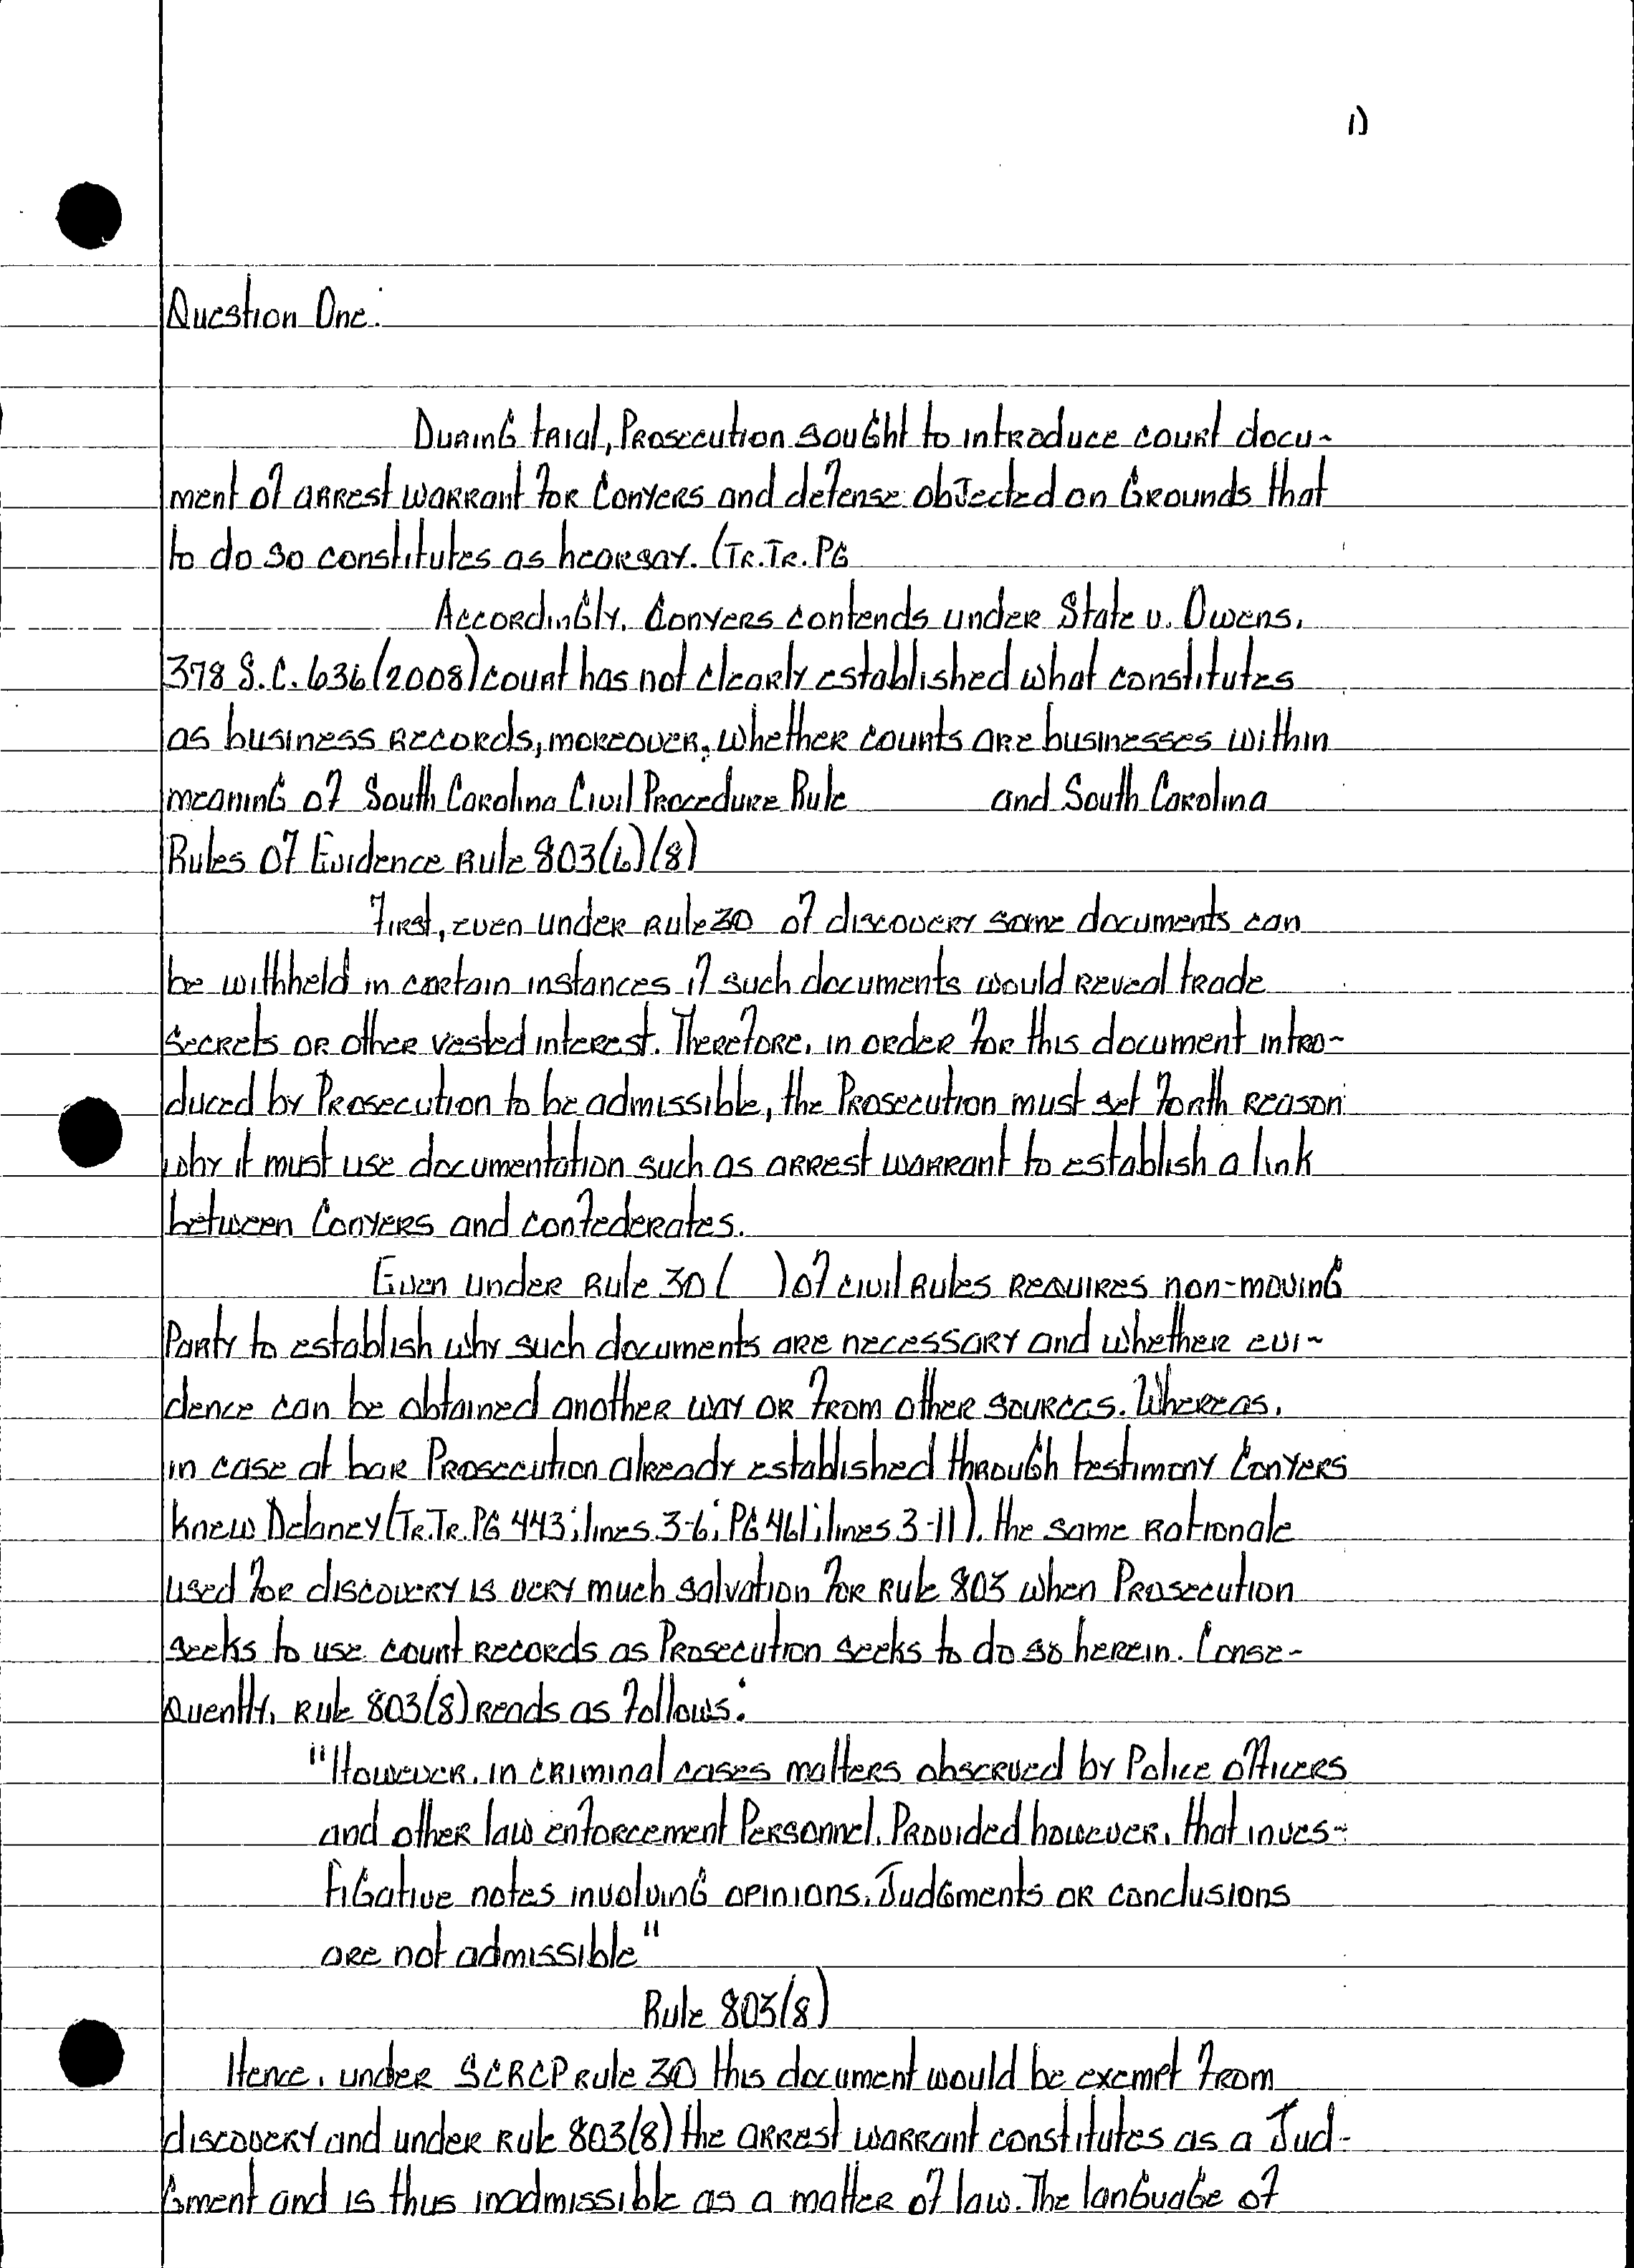 1)
Question One:
During trial, Prosecution sought to introduce court docu-
ment of arrest warrant for Conyers and defense objected on Grounds that
to do so constitutes as hearsay. (Tr. Tr. PG
Accordingly, Conyers contends under State v. Owens,
378 S.C. 636 (2008) court has not clearly established what constitutes
as business records, moreover, whether courts are businesses within
meaning of South Carolina Civil Procedure Rule and South Carolina
Rules Of Evidence Rule 803(6)(8)
First, even under Rule 30 of discovery some documents can
be withheld in certain instances if such documents would reveal trade
secrets or other vested interest. Therefore, in order for this document intro-
duced by Prosecution to be admissible, the Prosecution must set forth reason
why it must use documentation such as arrest warrant to establish a link
between Conyers and confederates.
Even under Rule 30 ( ) of civil Rules requires non-moving
Party to establish why such documents are necessary and whether evi-
dence can be obtained another way or from other sources. Whereas,
in case at bar Prosecution already established through testimony Conyers
knew Delaney (Tr. Tr. PG 443; lines 3-6; PG 461; lines 3-11). the same rationale
used for discovery is very much salvation for Rule 803 when Prosecution
seeks to use court records as Prosecution seeks to do so herein. Conse-
quently, Rule 803(8) reads as follows:
"However, in criminal cases matters observed by Police officers
and other law enforcement Personnel, Provided however, that inves-
tigative notes involving opinions, Judgments or conclusions
are not admissible"
Rule 803(8)
Hence, under SCRCP Rule 30 this document would be exempt from
discovery and under Rule 803(8) the arrest warrant constitutes as a Jud-
Gment and is thus inadmissible as a matter of law. The language of